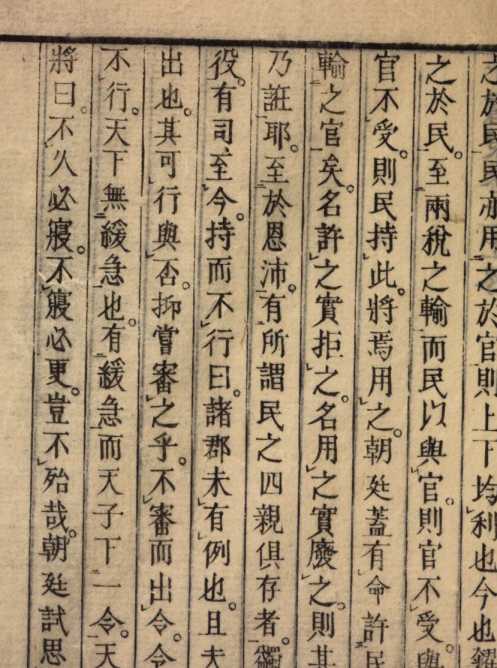 之於民民亦用之於官則上下均利也今也鐚
之於民至兩稅之輸而民以與官則官不受與
官不受則民持此將焉用之朝廷蓋有命許民
輸之官矣名許之實拒之名用之實廢之則其
乃誑耶至於恩沛有所謂民之四親俱存者蠲
役有司至今持而不行曰諸郡未有例也且夫
出也其可行與否抑嘗審之乎不審而出令令
不行天下無緩急也有緩急而天子下一令天
將曰不久必寢不寢必更豈不殆哉朝廷試思